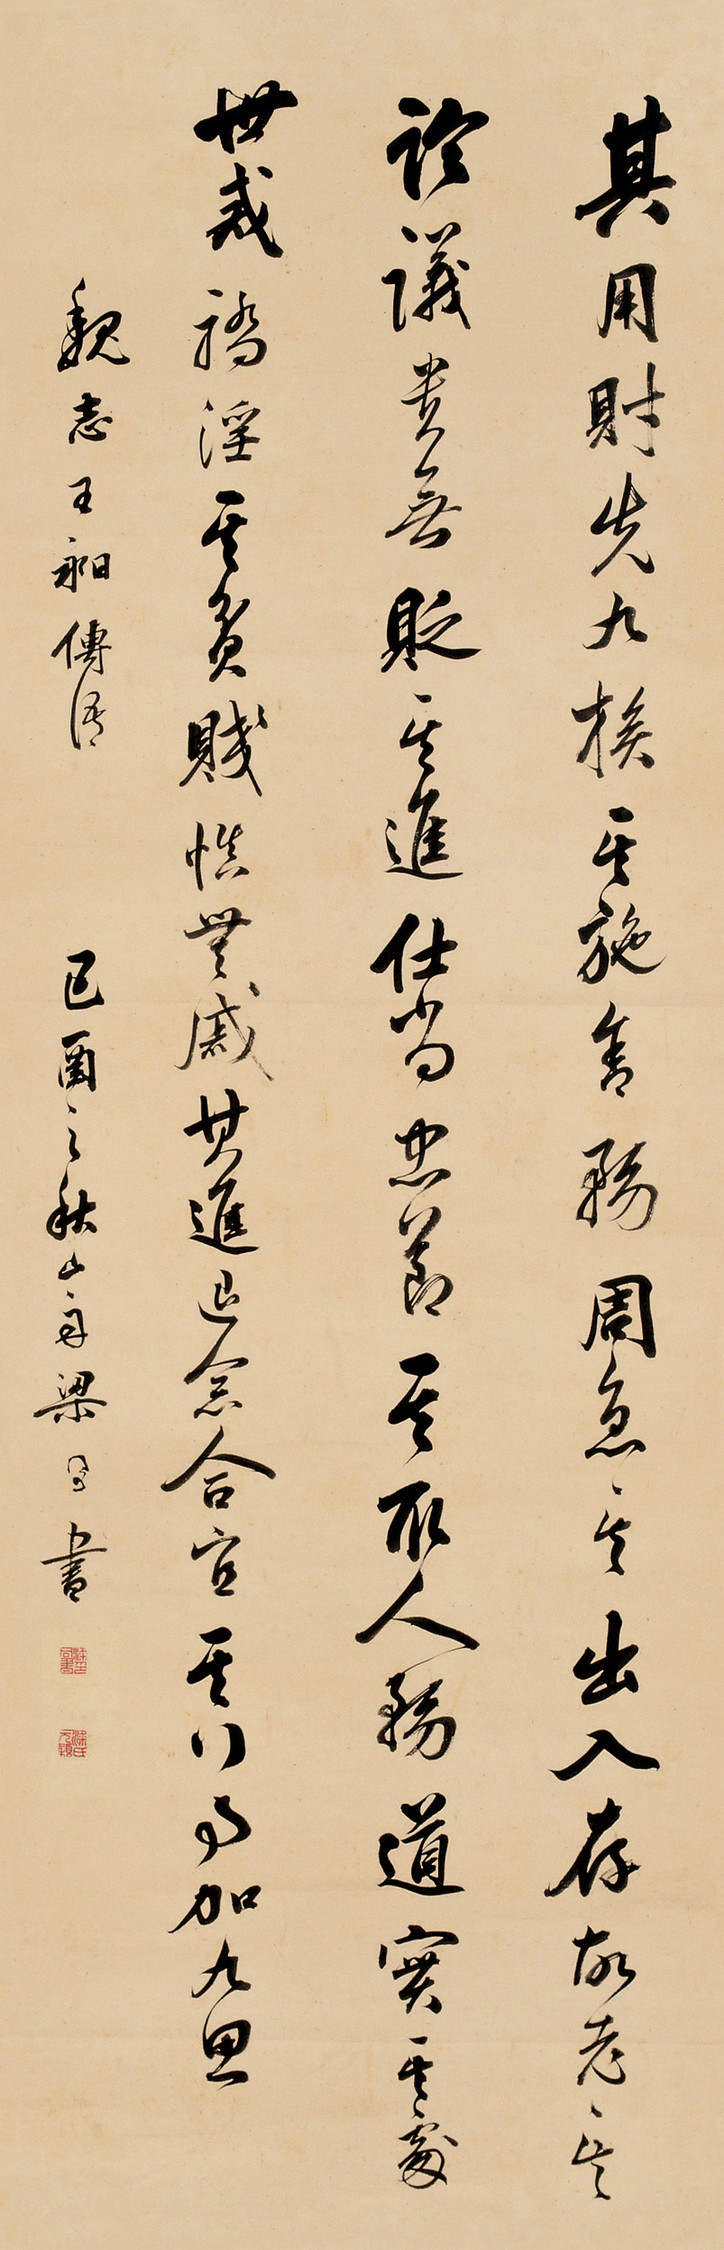 其用財先九族其施舍務周急其出入存故老其
論議貴無貶其進仕尚忠節其取人務道實其處
世戒驕淫其貧賤慎無戚其進退念合宜其行事加九思
魏志王昶傳語
己酉之秋山舟梁同書